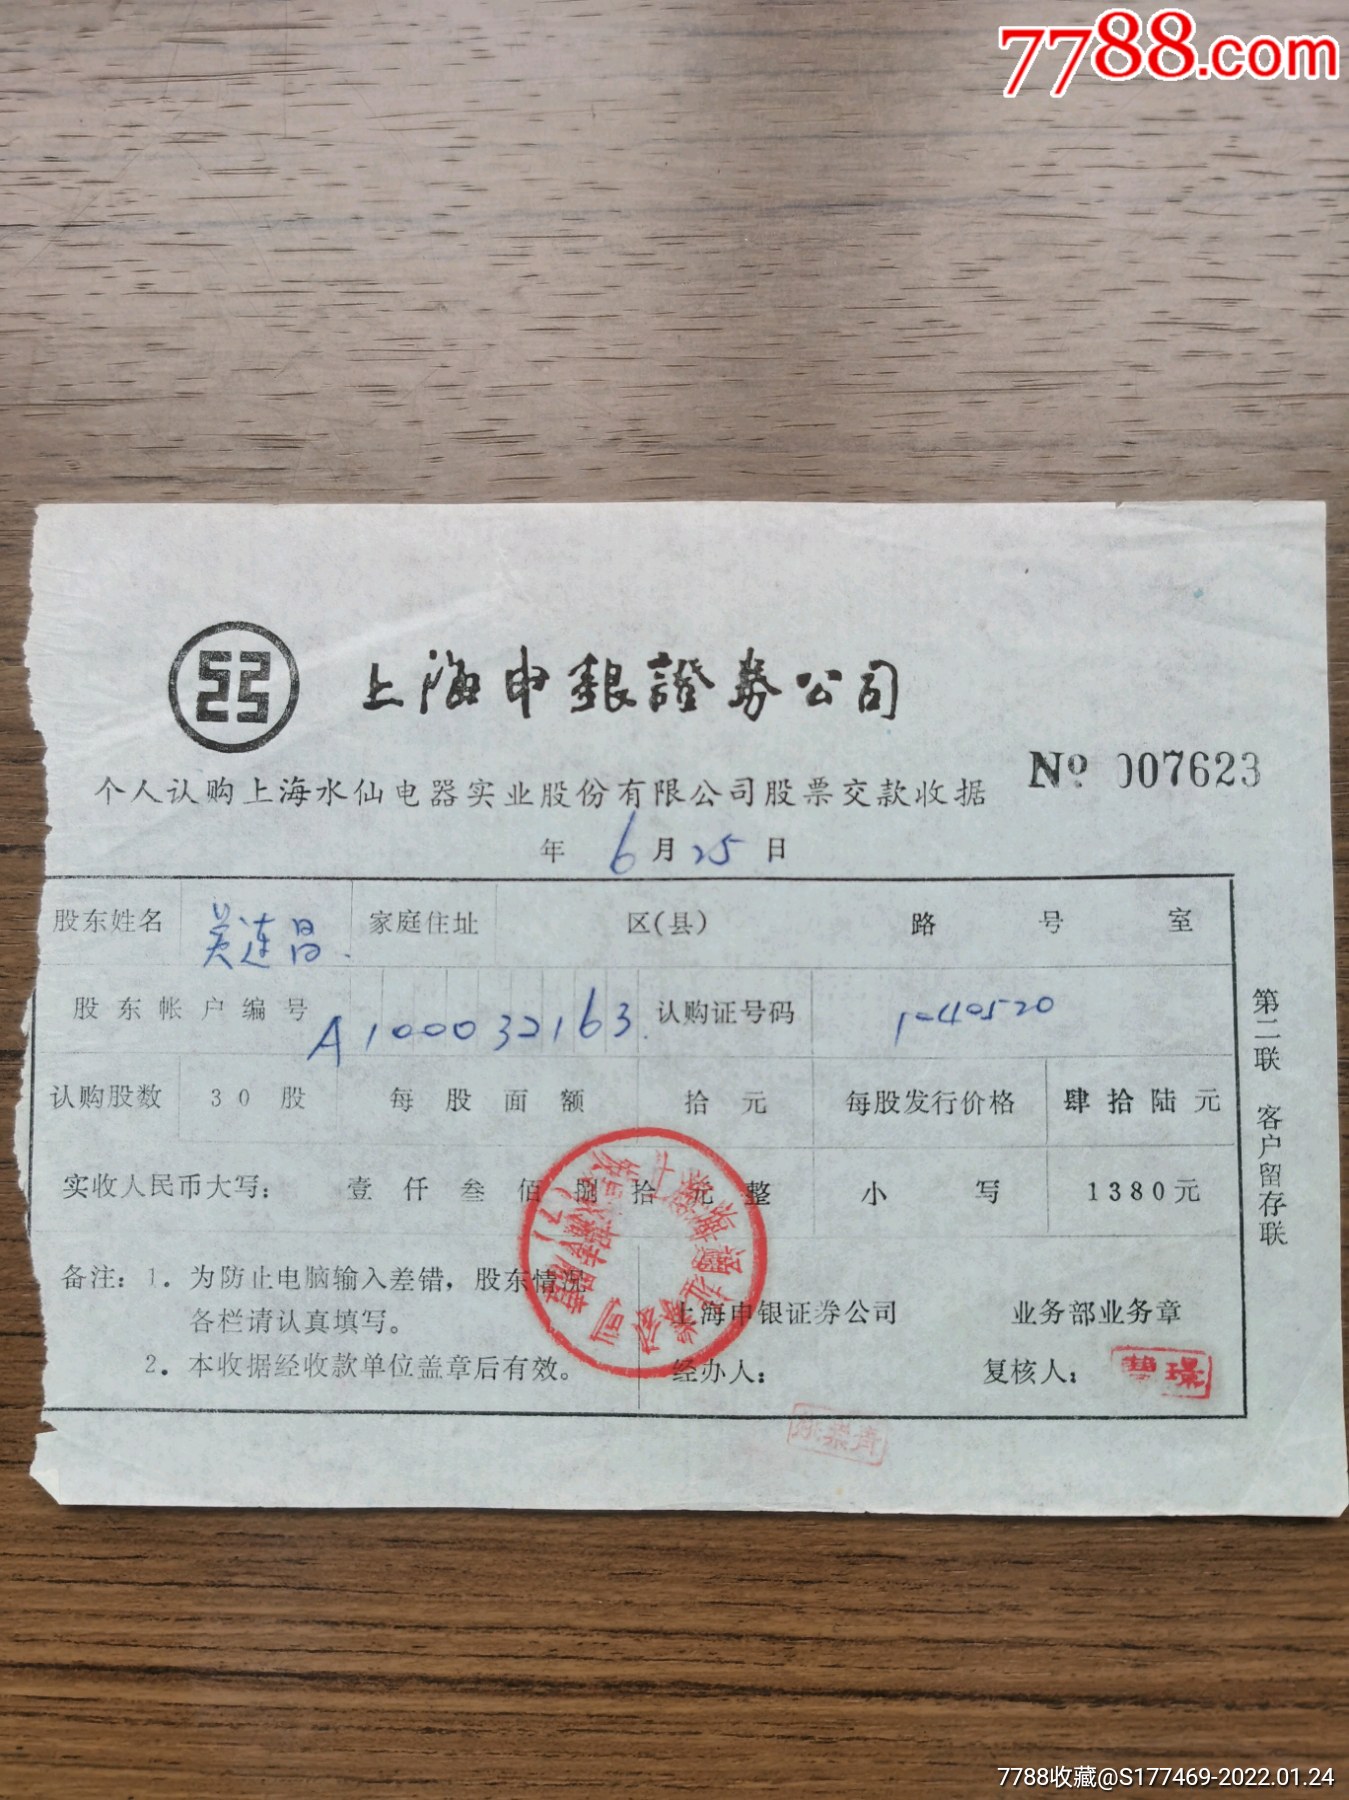 7788.com
上海申银證券公司
个人认购上海水仙电器实业股份有限公司股票交款收据
№ 007623
年 6 月 25 日
股东姓名 吴连昌. 家庭住址 区(县) 路 号 室
股东帐户编号 A100032163. 认购证号码 1-40520
认购股数 30 股 每股面额 拾元 每股发行价格 肆拾陆元
实收人民币大写: 壹仟叁佰捌拾元整 小写 1380元
备注: 1. 为防止电脑输入差错, 股东情况
各栏请认真填写。
2. 本收据经收款单位盖章后有效。
上海申银证券公司 业务部业务章
经办人: 复核人:
第二联 客户留存联
7788收藏@S177469-2022.01.24